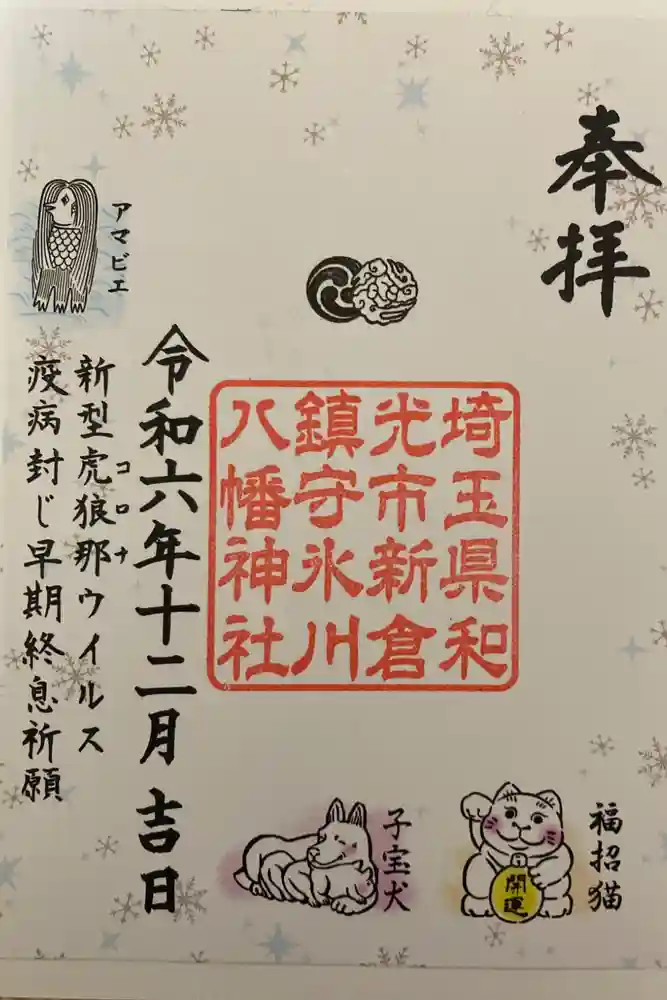 奉拝
埼玉県和
光市新倉
鎮守氷川
八幡神社
令和六年十二月吉日
アマビエ
新型虎狼那ウイルス
コロナ
疫病封じ早期終息祈願
福招猫
開運
子宝犬